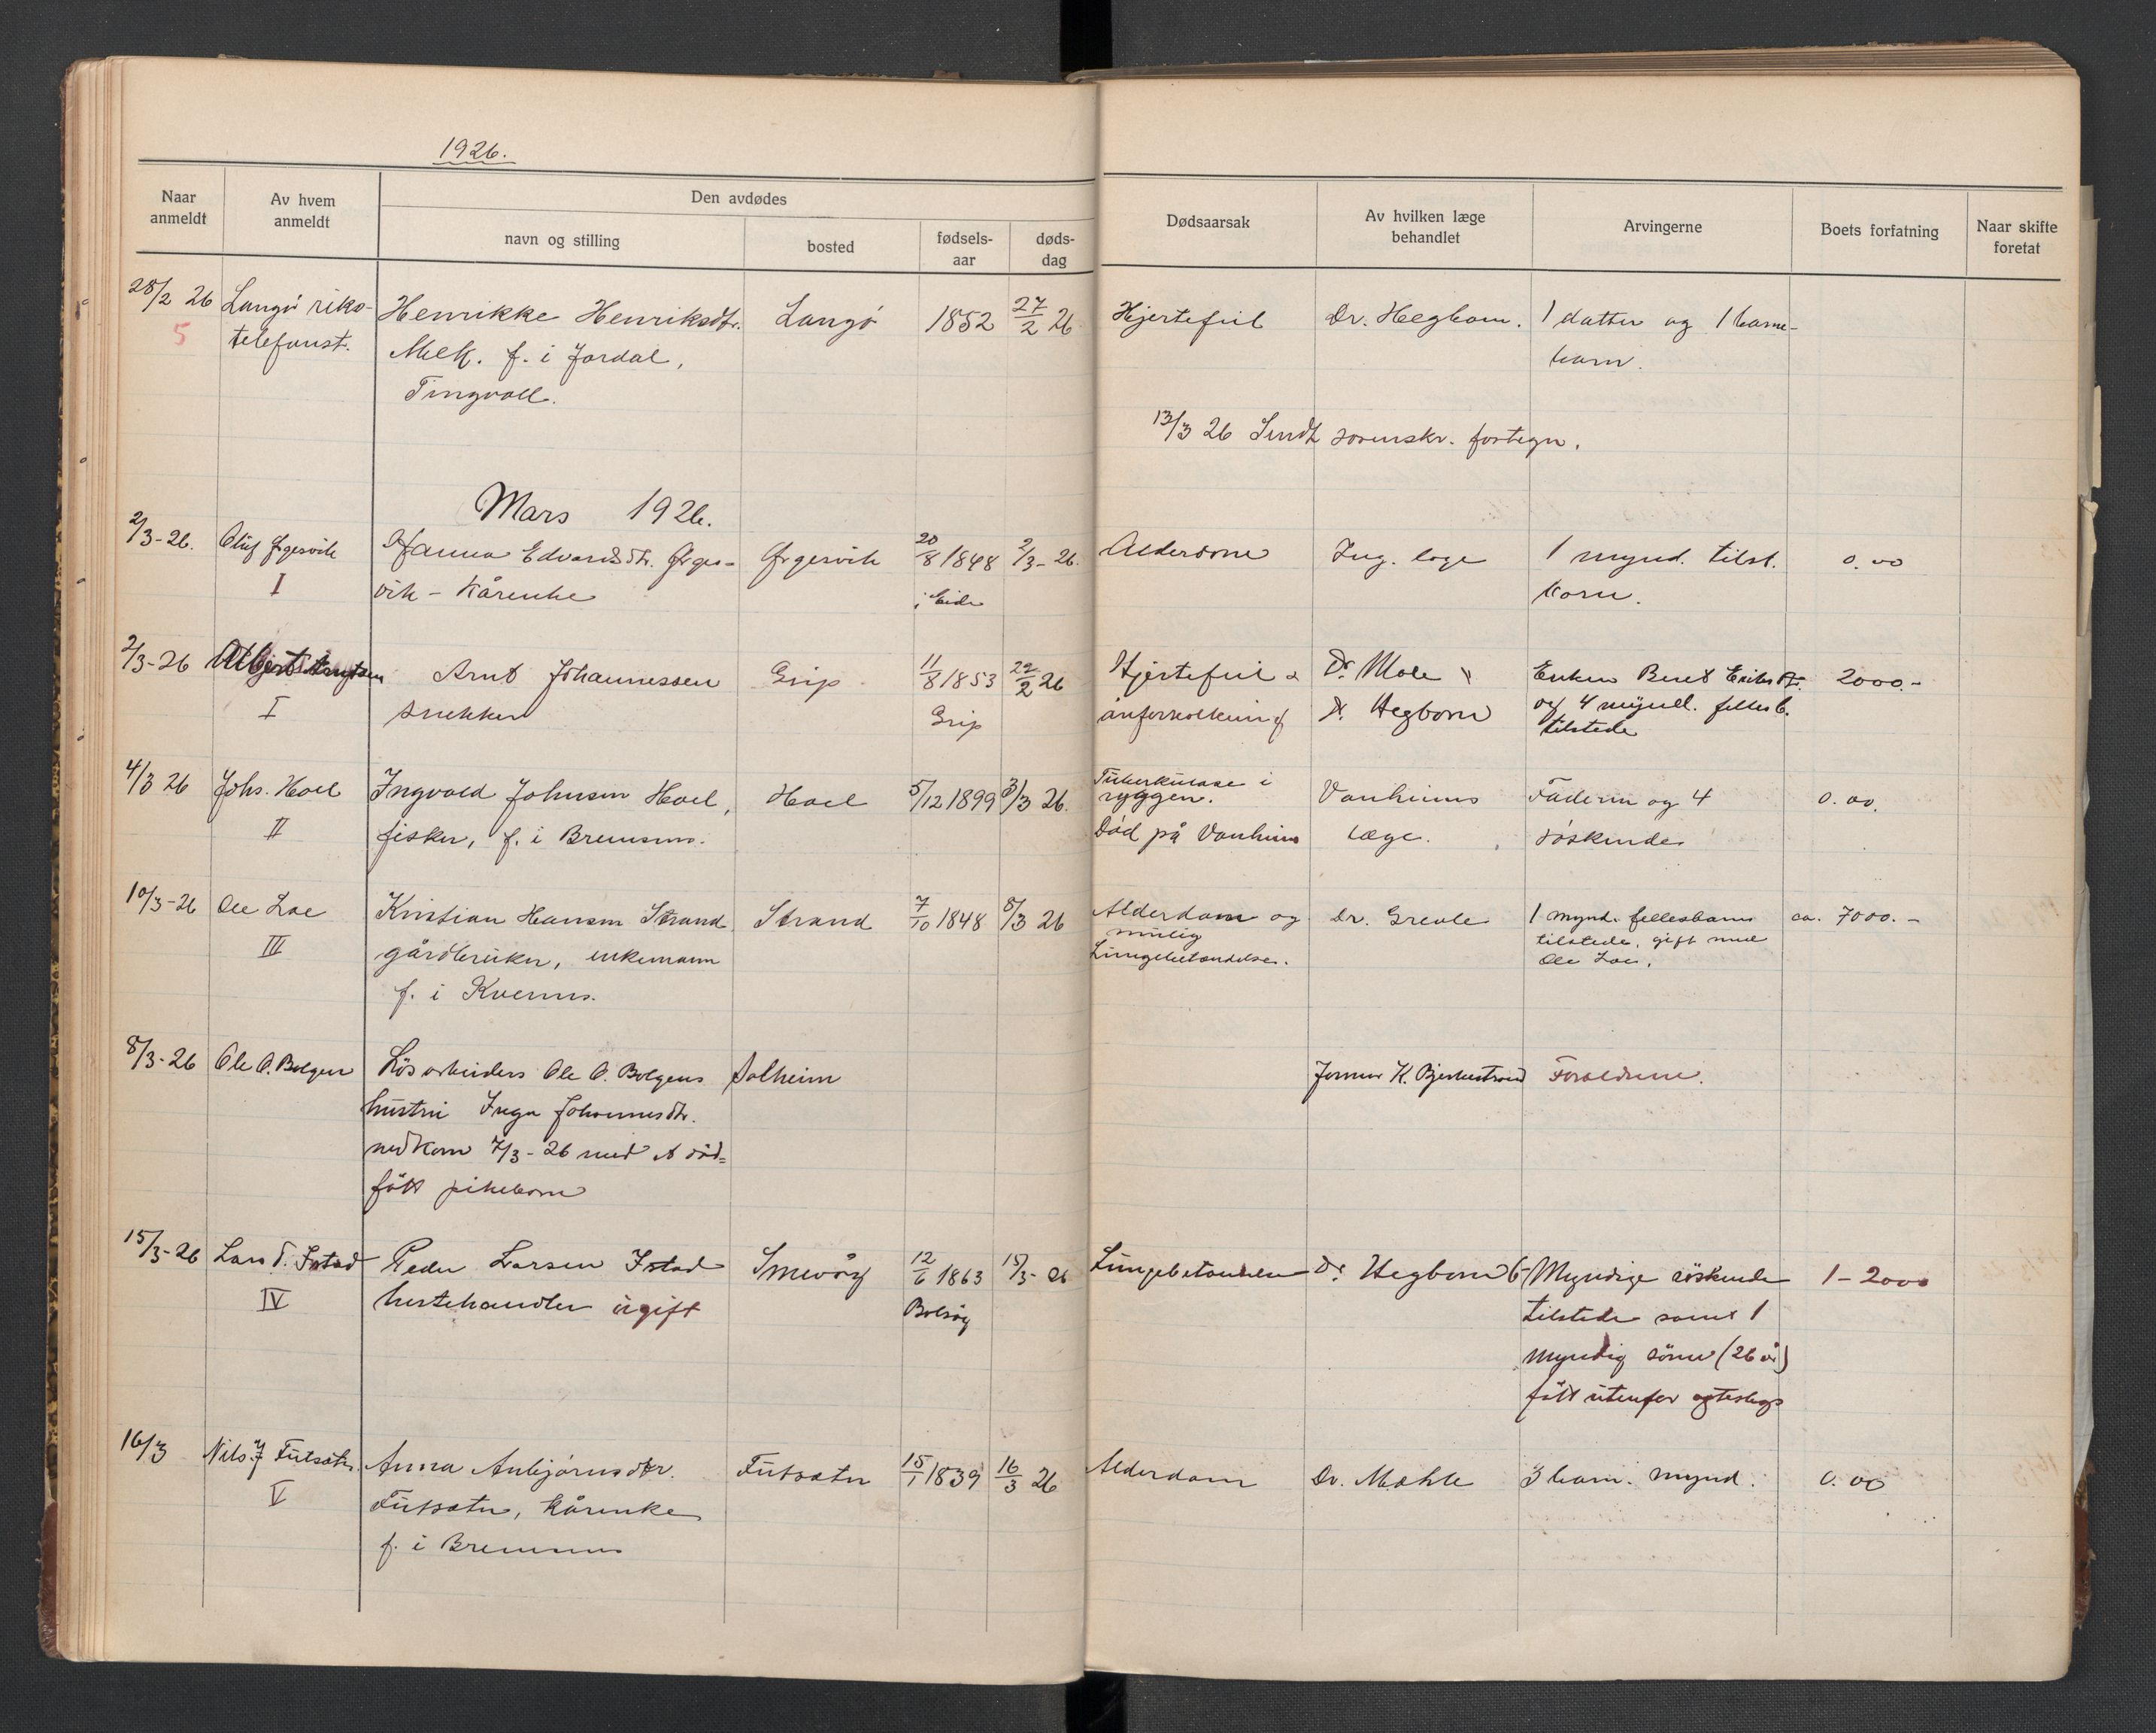 1926.
Naar anmeldt
Av hvem anmeldt
Den avdødes
navn og stilling
bosted
fødsels-aar
døds-dag
Dødsaarsak
Av hvilken læge behandlet
Arvingerne
Boets forfatning
Naar skifte foretat
28/2 26 Langö riks- Henrikke Henriksdtr. Langö 1852 27/2 26 Hjertefeil Dr. Hegbom. 1 datter og 1 barne-
5 telefonst. Melk. f. i Jordal, barn.
Tingvoll.
13/3 26 Sendt sorenskr. fortegn.
Mars 1926.
2/3-26. Oluf Ørgesvik Hanna Edvardsdtr. Ørges- Ørgesvik 20/8 1848 2/3-26. Alderdom Ing. læge 1 mynd. tilst. 0.00
I vik - kårenke i Eide barn.
2/3-26 Albert Arntsen Arnt Johannessen Grip 11/8 1853 22/2 26 Hjertefeil & Dr. Mole " Enken Beret Eriksdtr. 2000.-
I snekker Grip årforkalkning Dr. Hegbom og 4 mynd. felles b.
tilstede
4/3 26 Johs. Hoel Ingvald Johnsen Hoel, Hoel 5/12 1899 3/3 26. Tuberkulose i Vanheims Faderen og 4 0.00.
ryggen.
II fisker, f. i Bremsnes. Död på Vanheim læge. söskende
10/3-26 Ole Loe Kristian Hansen Strand Strand 7/10 1848 8/3 26 Alderdom og Dr. Greole 1 mynd. fellesbarn ca. 7000.-
mulig tilstede, gift med
III gårdbruker, enkemann Lungebetændelse. Ole Loe.
f. i Kvernes.
8/3-26 Ole O. Bolgen Lösarbeiders Ole O. Bolgens Solheim Jormor K. Bjerkestrand Foreldrene.
hustru Inga Johannesdtr.
nedkom 7/3-26 med et död-
född pikebarn
15/3-26 Lars P. Istad Peder Larsen Istad Smevåg 12/6 1863 15/3-26 Lungebetændelse Dr. Hegbom 6 Myndige söskende 1-2000
IV hestehandler ugift Bolsöy tilstede samt 1
myndig sönn (26 år)
född utenfor egteskap
16/3 Nils J Futsæter. Anna Anbjörnsdtr. Futsæter 15/1 1839 16/3 26 Alderdom Dr. Mohle 3 barn. mynd. 0.00
V Futsæter, kårenke
f. i Bremsnes